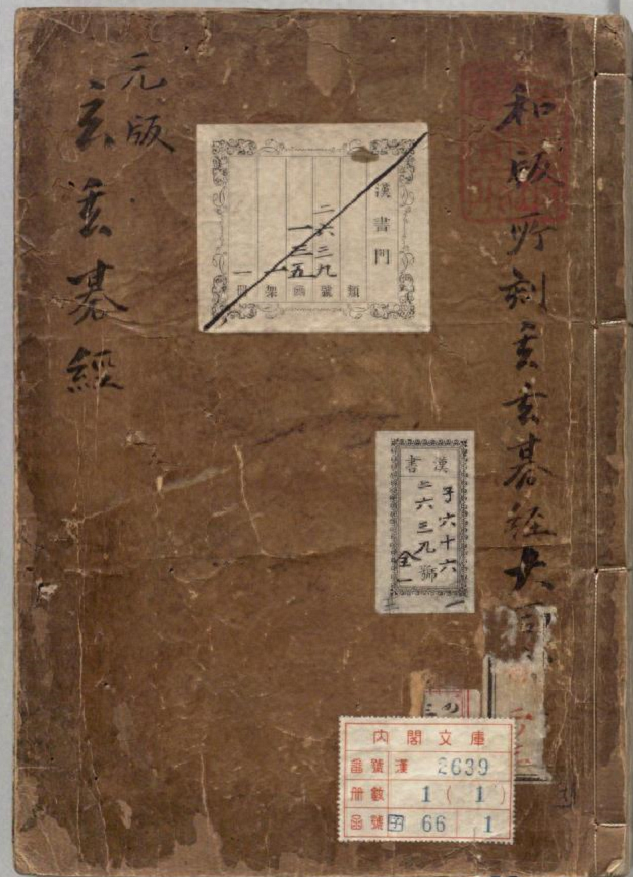 和版所刻玄玄碁経大同小
元版
玄玄碁經
漢書門
類
二六三九
號
一三五
函
一
架
一
冊
漢書
子六十六
二六三九號
全一
内閣文庫
番號 漢 2639
冊數 1 ( 1 )
函號 子 66 1